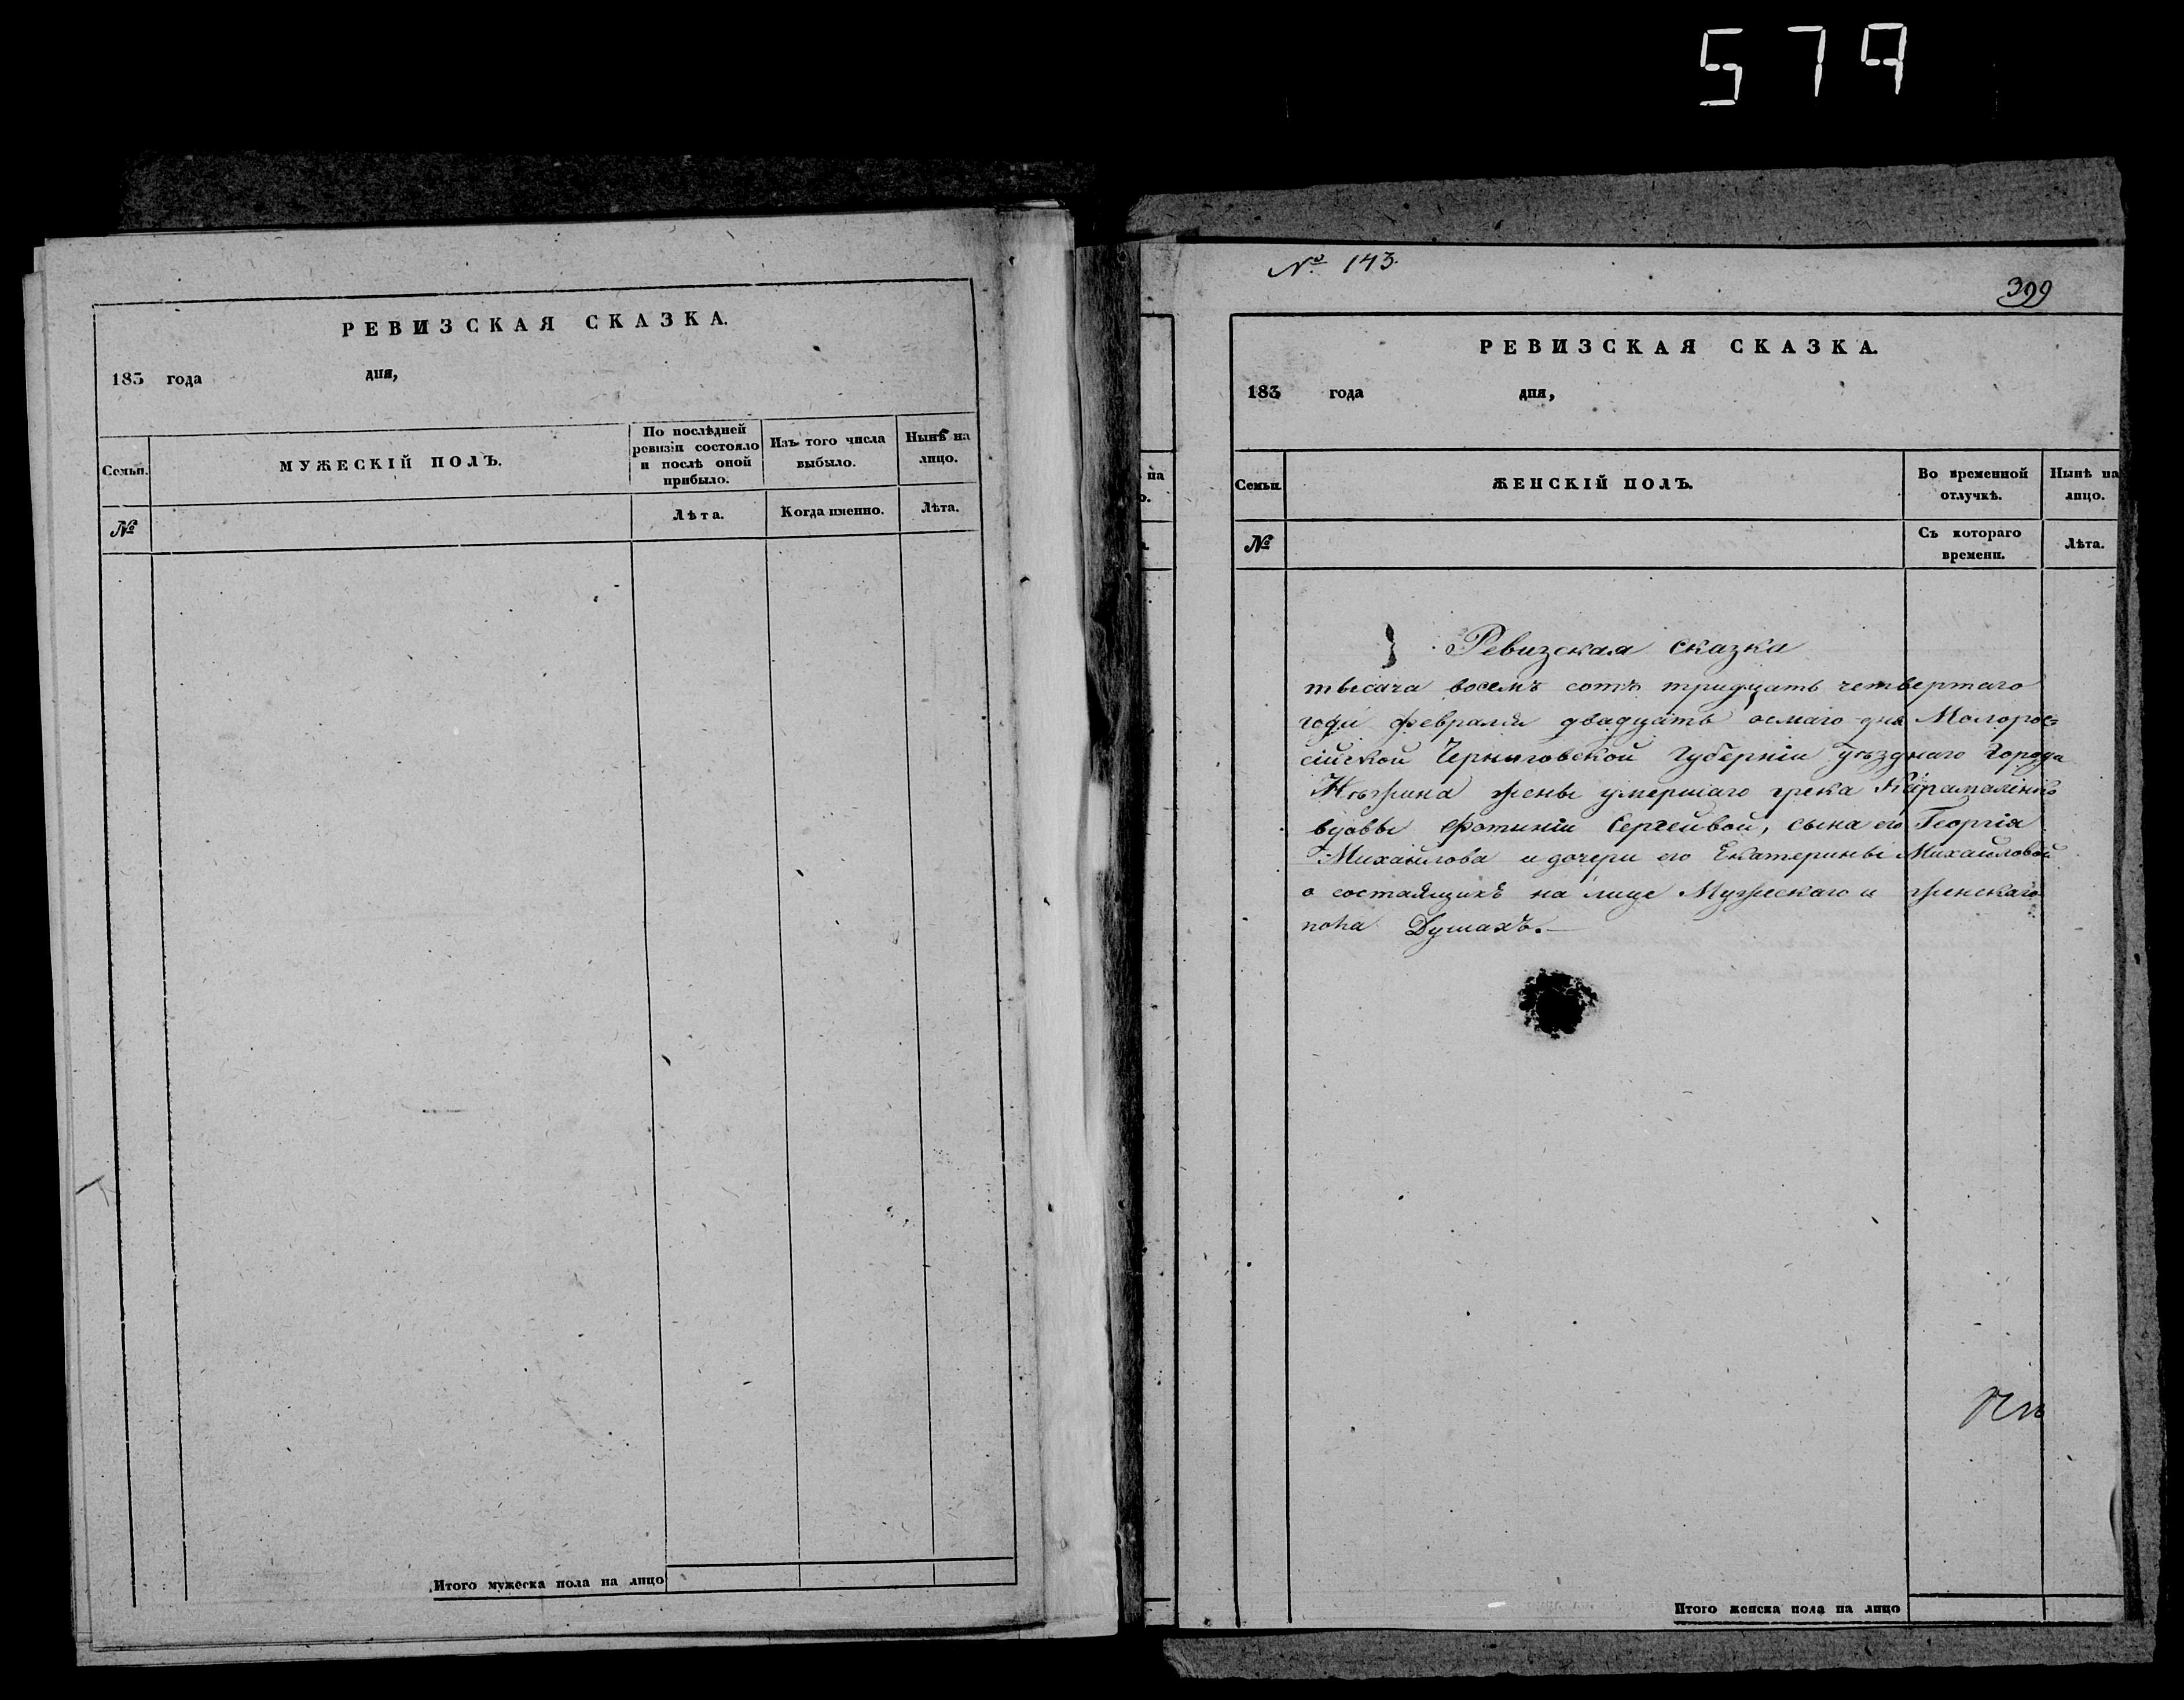 579
РЕВИЗСКАЯ СКАЗКА.
183 года дня,
Семьи.
МУЖЕСКІЙ ПОЛЪ.
По послѣдней ревизіи состояло и послѣ оной прибыло.
Изъ того числа выбыло.
Нынѣ на лицо.
№
Лѣта.
Когда именно.
Лѣта.
Итого мужеска пола на лицо
№ 143.
399
РЕВИЗСКАЯ СКАЗКА.
183 года дня,
Семьи.
ЖЕНСКІЙ ПОЛЪ.
Во временной отлучкѣ.
Нынѣ на лицо.
№
Съ котораго времени.
Лѣта.
Ревизская сказка
тысяча восемъ сотъ тридцать четвертаго
года февраля двадцать осмаго дня Малорос=
сійской Черниговской Губерніи уѣзднаго города
Нѣжина жены умершаго грека
вдовы Фотиніи Сергеивой, сына его Георгія
Михайлова и дочери его Екатерины Михайловой
о состаящихъ на лице Мужескаго и женскаго
пола Душахъ.—
Итого женска пола на лицо